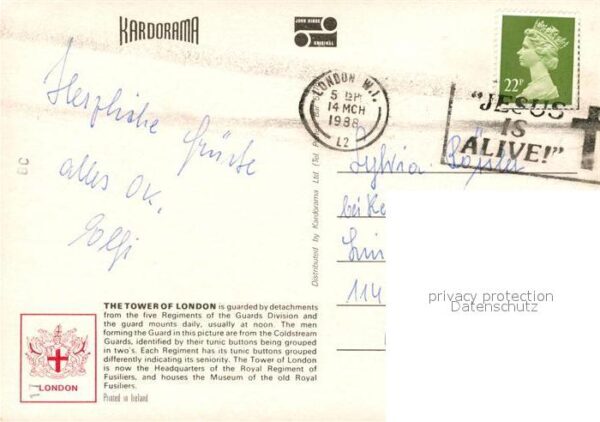 KARDORAMA
JOHN HINDE
ORIGINAL
22P
LONDON W.1.
5 PM
14 MCH
1988
L2
"JESUS
IS
ALIVE!"
Herzliche Grüße
alles OK.
Elfi
Sylvia
bei
114
Distributed by Kardorama Ltd.
privacy protection
Datenschutz
THE TOWER OF LONDON is guarded by detachments
from the five Regiments of the Guards Division and
the guard mounts daily, usually at noon. The men
forming the Guard in this picture are from the Coldstream
Guards, identified by their tunic buttons being grouped
in two's. Each Regiment has its tunic buttons grouped
differently indicating its seniority. The Tower of London
is now the Headquarters of the Royal Regiment of
Fusiliers, and houses the Museum of the old Royal
Fusiliers.
Printed in Ireland
LONDON